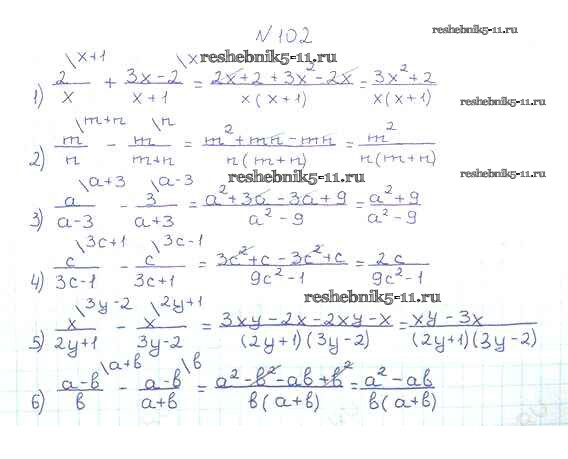 №102
reshebnik5-11.ru
1) 2/x \x+1 + 3x-2/x+1 \x = 2x+2+3x²-2x/x(x+1) = 3x²+2/x(x+1)
reshebnik5-11.ru
reshebnik5-11.ru
2) m/n \m+n - m/m+n \n = m²+mn-mn/n(m+n) = m²/n(m+n)
reshebnik5-11.ru
reshebnik5-11.ru
3) a/a-3 \a+3 - 3/a+3 \a-3 = a²+3a-3a+9/a²-9 = a²+9/a²-9
4) c/3c-1 \3c+1 - c/3c+1 \3c-1 = 3c²+c-3c²+c/9c²-1 = 2c/9c²-1
reshebnik5-11.ru
5) x/2y+1 \3y-2 - x/3y-2 \2y+1 = 3xy-2x-2xy-x/(2y+1)(3y-2) = xy-3x/(2y+1)(3y-2)
6) a-b/b \a+b - a-b/a+b \b = a²-b²-ab+b²/b(a+b) = a²-ab/b(a+b)